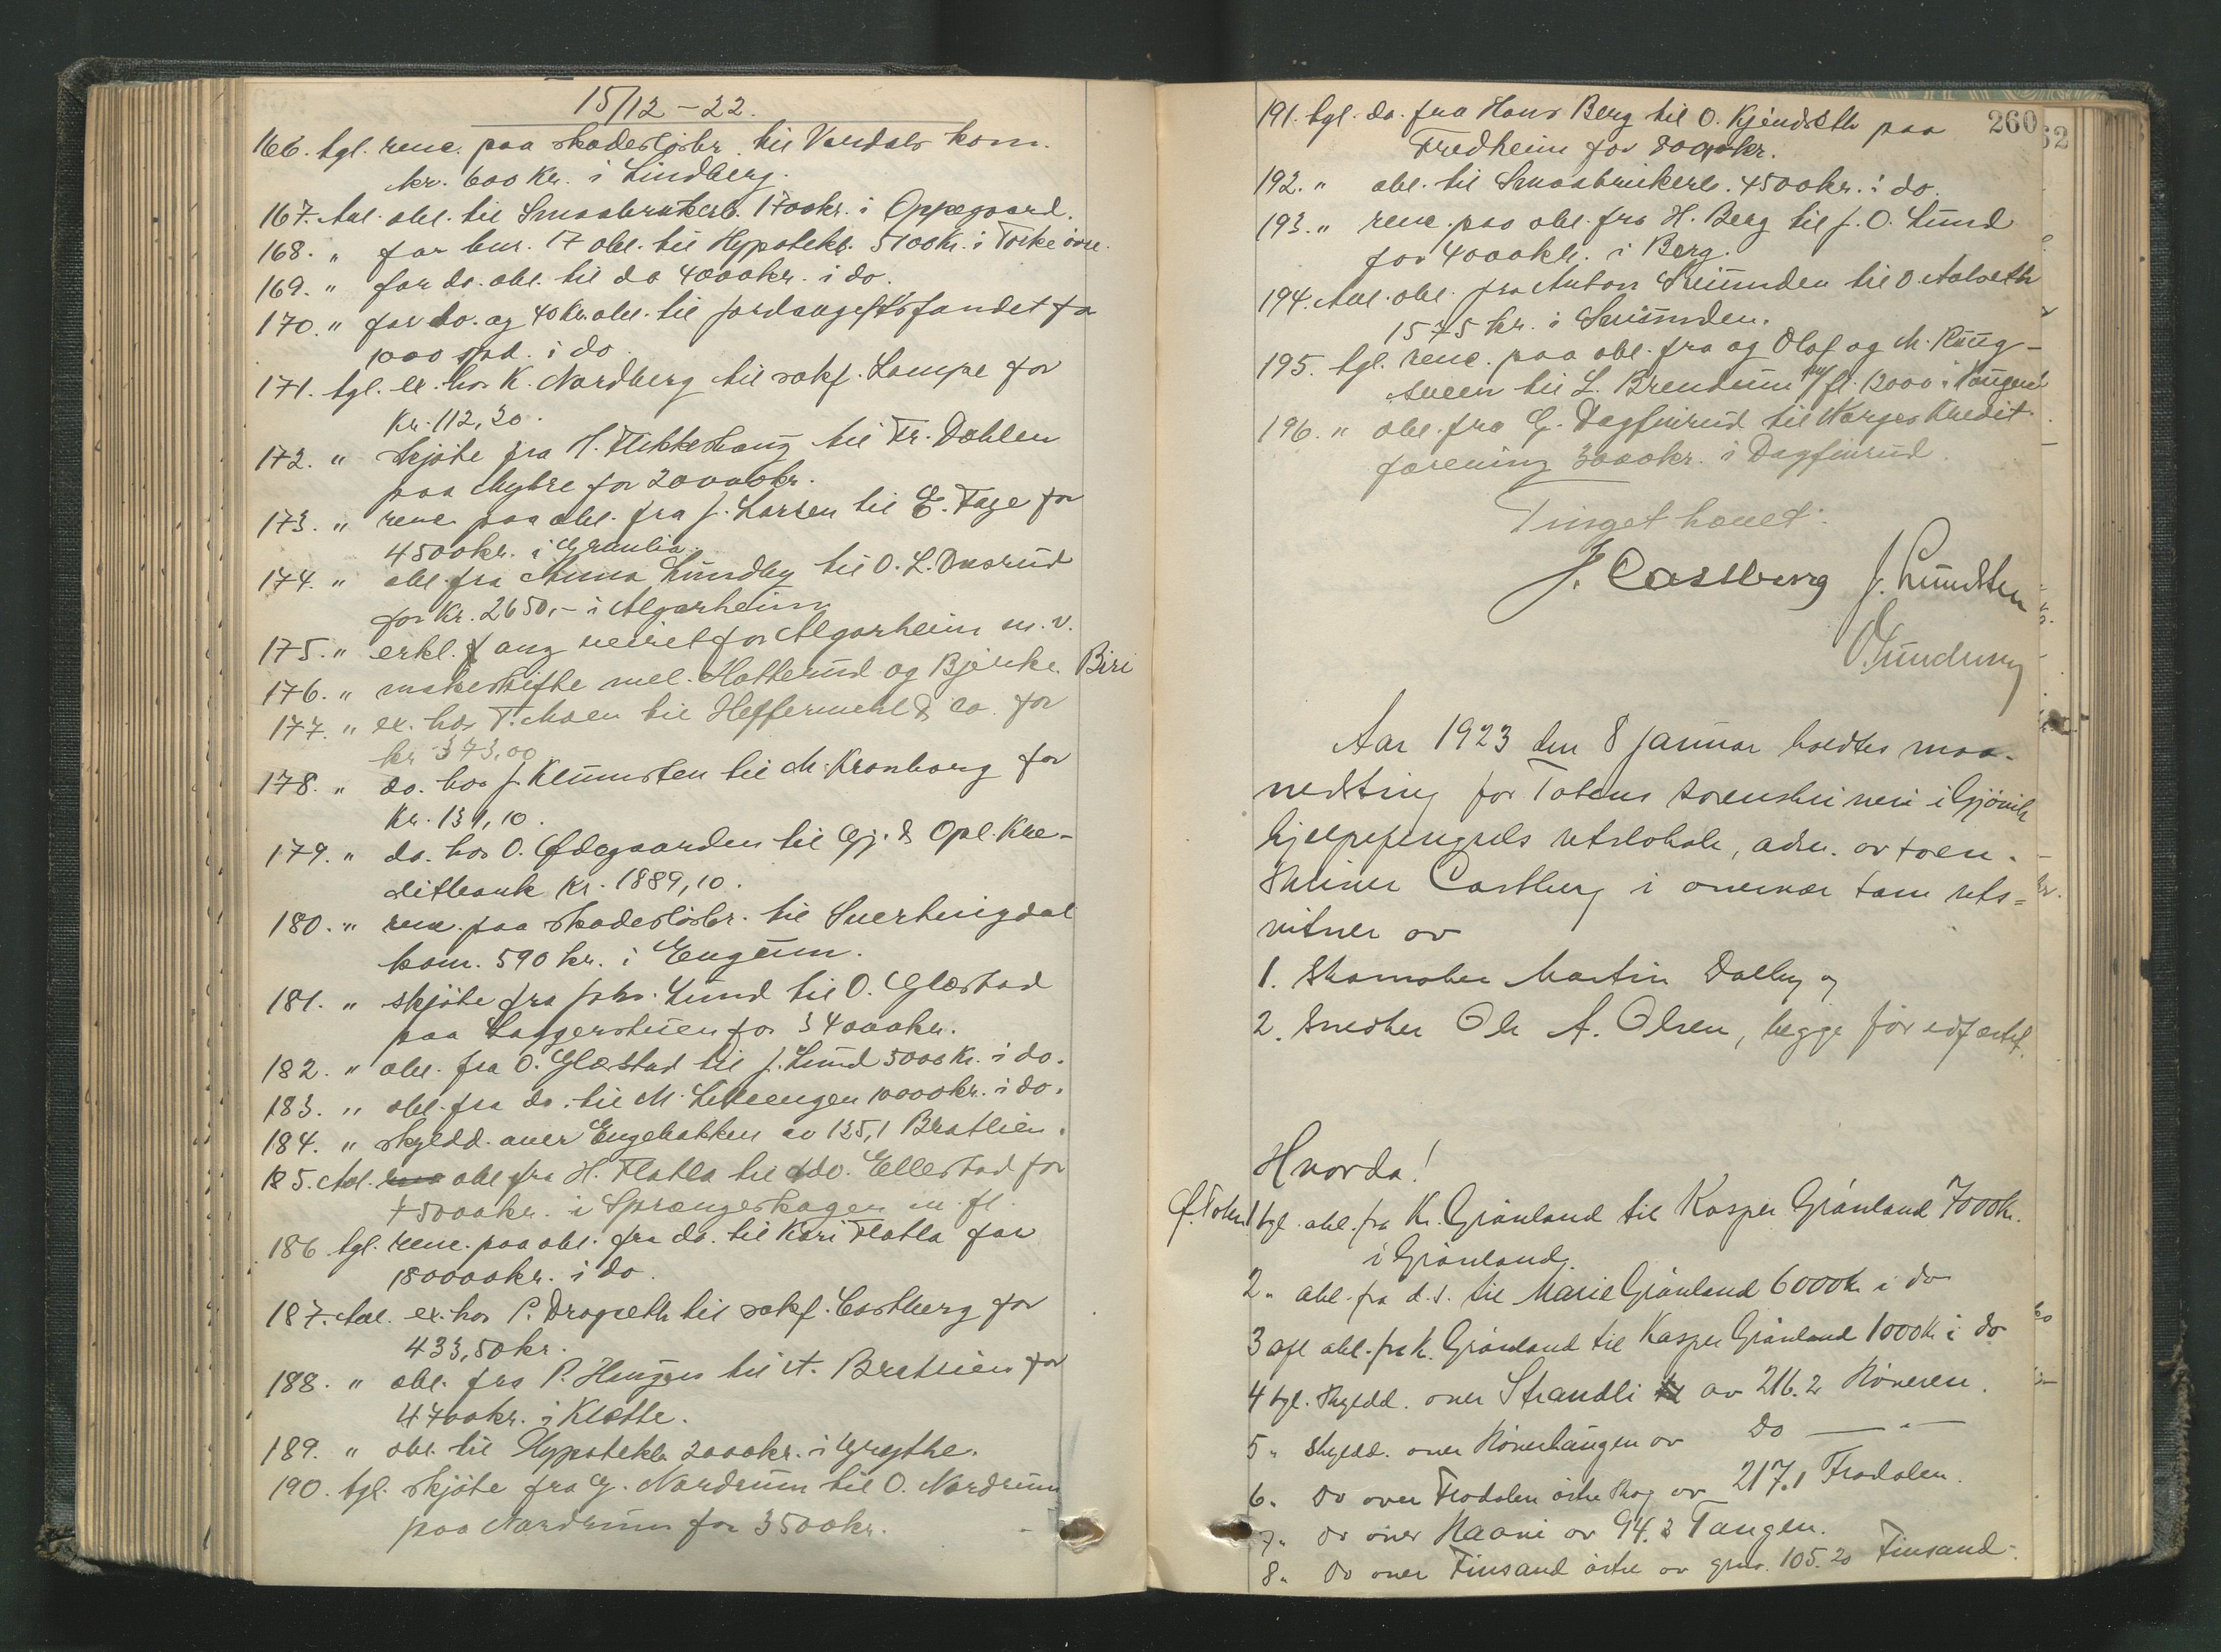 15/12-22.
166. tgl. renc. paa skadesløsbr. til Vardals kom.
kr. 600 kr. i Lindberg.
167. Avl. obl. til Smaabrukerb. 1700kr. i Oppegaard.
168. " for bnr. 17 obl. til Hypotekb. 5100kr. i Torke övre.
169. " for do. obl. til do 4000kr. i do.
170. " for do. og 40 kr. obl. til jordavgiftsfondet for
1000 spd. i do
171. tgl. ex. hos K. Nordberg til sakf. Lampe for
Kr. 112,30.
172. " skjöte fra H. til Fr. Dahlen
paa Myhre for 20000kr.
173. " renc. paa obl. fra J. Larsen til E. Fage for
4500kr. i Granlia.
174. " obl. fra Anna Lundby til O. L. Onsrud
for Kr. 2650,- i Algarheim
175. " erkl. ang veiret for Algarheim m. v.
176. " makeskifte mel. Hotterud og Bjerke. Biri
177. " ex. hos T. Moen til Heffermehl & co. for
kr 373,00
178. " do. hos J. Klumsten til M. Kronborg for
Kr. 131,10.
179. " do. hos O. Ødegaarden til Gj. & Opl. Kre-
ditbank Kr. 1889,10.
180. " renc. paa skadesløsbr. til Snertingdal
kom. 590 kr. i Engum.
181. " skjöte fra Johs. Lund til O. Glæstad
paa Laggerstuen for 34000kr.
182. " obl. fra O. Glæstad til J. Lund 5000 kr. i do.
183. " obl. fra do. til M. 10000kr. i do.
184. " skyldd. over Engebakken av 125,1 Bratlien.
185. Avl. obl fra H. Flatla til do. Ellestad for
75000kr. i Sprangerhagen m. fl.
186 tgl. renc. paa obl. fra do. til Kari Flatla for
18000kr. i do.
187. Avl. ex. hos P. Dragseth til sakf. Castberg for
433,50kr.
188. " obl. fra P. Haugen til A. Bratlien for
4700kr. i Klætte.
189. " obl. til Hypotekb. 2000kr. i Grythe.
190. tgl. skjöte fra G. Nordrum til O. Nordrum
paa Nordrum for 3500kr.
260
62
191. tgl. do. fra Hans Berg til O. Kjendseth paa
Fredheim for 8000kr.
192. " obl. til Smaabrukerb. 4500kr. i do.
193. " renc. paa obl. fra H. Berg til J. O. Lund
for 4000kr. i Berg.
194. Avl. obl. fra Anton til O. Aalseth
1575 kr. i
195. tgl. renc. paa obl. fra og Olaf og M. Kung-
sveen til L. Brendum m/fl. 12000 i
196. " obl. fra G. Dagfinrud til Norges Kredit
forening 3000kr. i Dagfinrud.
Tinget hævet:
J. Castberg J. Lundsten
Aar 1923 den 8 januar holdtes maa-
nedsting for Totens sorenskriveri i Gjövik
hjelpefengsels retslokale, adm. av soren-
skriver Castberg i overvær som rets=
vitner av
1. Skomaker Martin Dalby og
2. Snedker Ole A. Olsen, begge før edfæstet.
Hvorda!
Ø. Toten 1 tgl. obl. fra Kr. Grönland til Kasper Grönland 7000kr.
i Grönland.
2 " obl. fra d. s. til Marie Grönland 6000kr i do
3 afl obl. fra K. Grönland til Kasper Grönland 1000kr i do
4 tgl. skyldd. over Strandli av 216.2 Röneren.
5 " skyldd. over av do — " —
6 " do over Frodalen östre skog av 217.1 Frodalen.
7 " do over Haani av 94.3 Tangen.
8 " do over Finsand östre av gnr. 105.20 Finsand.